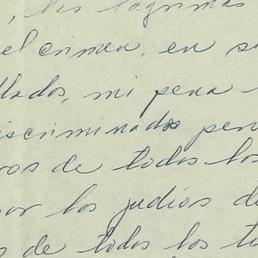 , las lágrimas
el crimen, en su
llados, mi pena
iscriminados pero
ros de todos los
por los judíos de
s de todos los t